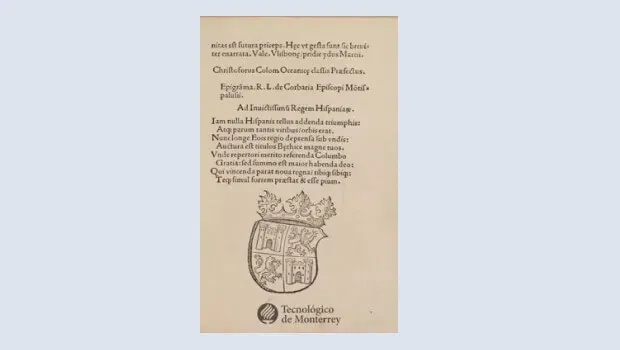 nitas est futura priceps. Hęc vt gesta sunt sic breui-
ter enarrata. Vale. Vlisbonę, pridie ydus Marcii.
Christoforus Colom Oceanicę classis Præfectus.
Epigrāma. R. L. de Corbaria Episcopi Mōtis-
palusii.
Ad Inuictissimū Regem Hispaniaȩ.
Iam nulla Hispanis tellus addenda triumphis:
Atq; parum tantis viribus/orbis erat.
Nunc longe Eois regio deprensa sub vndis:
Auctura est titulos Bęthice magne tuos.
Vnde repertori merito referenda Columbo
Gratia: sed summo est maior habenda deo:
Qui vincenda parat noua regna/ tibiq; sibiq;:
Teq; simul fortem præstat & esse pium.
Tecnológico
de Monterrey